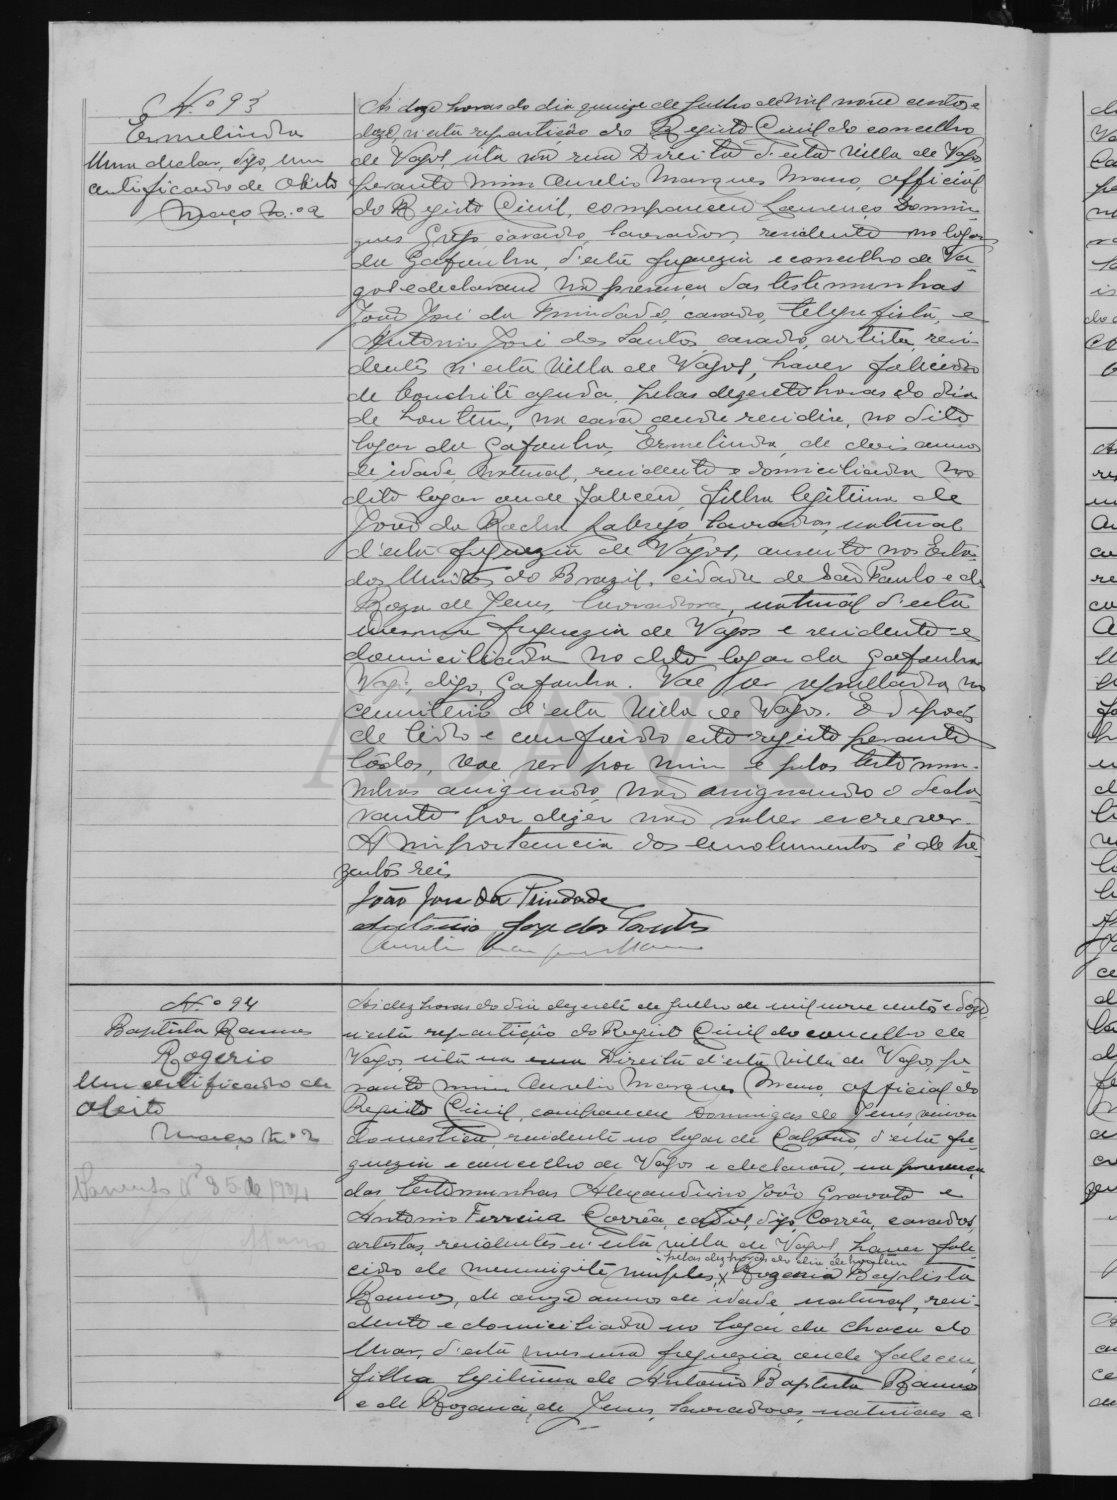 N.º 93
Ermelinda
Um declar, digo, um
certificado de Obito
Março N.º 2
Ás doze horas do dia quinze de Julho de Mil nove centos e
doze, n'esta repartição do Registo Civil do concelho
de Vagos, sita na rua Direita d'esta Villa de Vagos
perante mim Aurelio Marques Mano, official
do Registo Civil, compareceu Lourenço Domin-
gues Grego, casado, lavrador, residente no logar
da Gafanha, d'esta freguezia e concelho de Va-
gos e declarou na presença das testemunhas
João José da Trindade, casado, telegrafista, e
Antonio José dos Santos casado, artista, resi-
dentes n'esta Villa de Vagos, haver falecido
de bronchite aguda, pelas dezesete horas do dia
de hontem, na casa aonde residia, no dito
logar da Gafanha, Ermelinda, de dois annos
de idade, natural, residente e domiciliada no
dito logar onde faleceu, filha legitima de
João da Rocha Labrego, lavrador, natural
d'esta freguezia de Vagos, ausente nos Esta-
dos Unidos do Brazil, cidade de São Paulo e de
Roza de Jesus, lavradora, natural d'esta
mesma freguezia de Vagos e residente e
domiciliada no dito logar da Gafanha
Vagos, digo, Gafanha. Vae ser sepultada no
cemiterio d'esta Villa de Vagos. E depois
de lido e conferido este registo perante
todos, vae ser por mim e pelas testemu-
nhas assignado, não assignando o decla-
rante por dizer não saber escrever.
A importancia dos emolumentos é de tre-
zentos reis.
João José da Trindade
Antonio Joze dos Santos
Aurelio Marques Mano
N.º 94
Baptista Ramos
Rogerio
Um certificado de
Obito
Março N.º 2
N.º 85 de 1934
Mano
Ás dez horas do dia dezesete de Julho de mil nove centos e doze,
n'esta repartição do Registo Civil do concelho de
Vagos, sita na rua Direita d'esta Villa de Vagos, pe-
rante mim Aurelio Marques Mano, official do
Registo Civil, compareceu Domingas de Jesus, viuva
domestica, residente no logar de Calvão, d'esta fre-
guezia e concelho de Vagos e declarou, na presença
das testemunhas Alexandrino João Gravato e
Antonio Ferreira Corrêa, digo, Corrêa, casados,
artistas, residentes n'esta villa de Vagos haver fale-
pelas dez horas do dia de hontem
cido de meningite simples, x Baptista
Ramos, de onze annos de idade, natural, resi-
dente e domiciliado no logar da Choca do
Mar, d'esta mesma freguezia, onde faleceu,
filho legitimo de Antonio Baptista Ramos
e de Rozaria de Jesus, lavradores, naturaes e
ADAVR